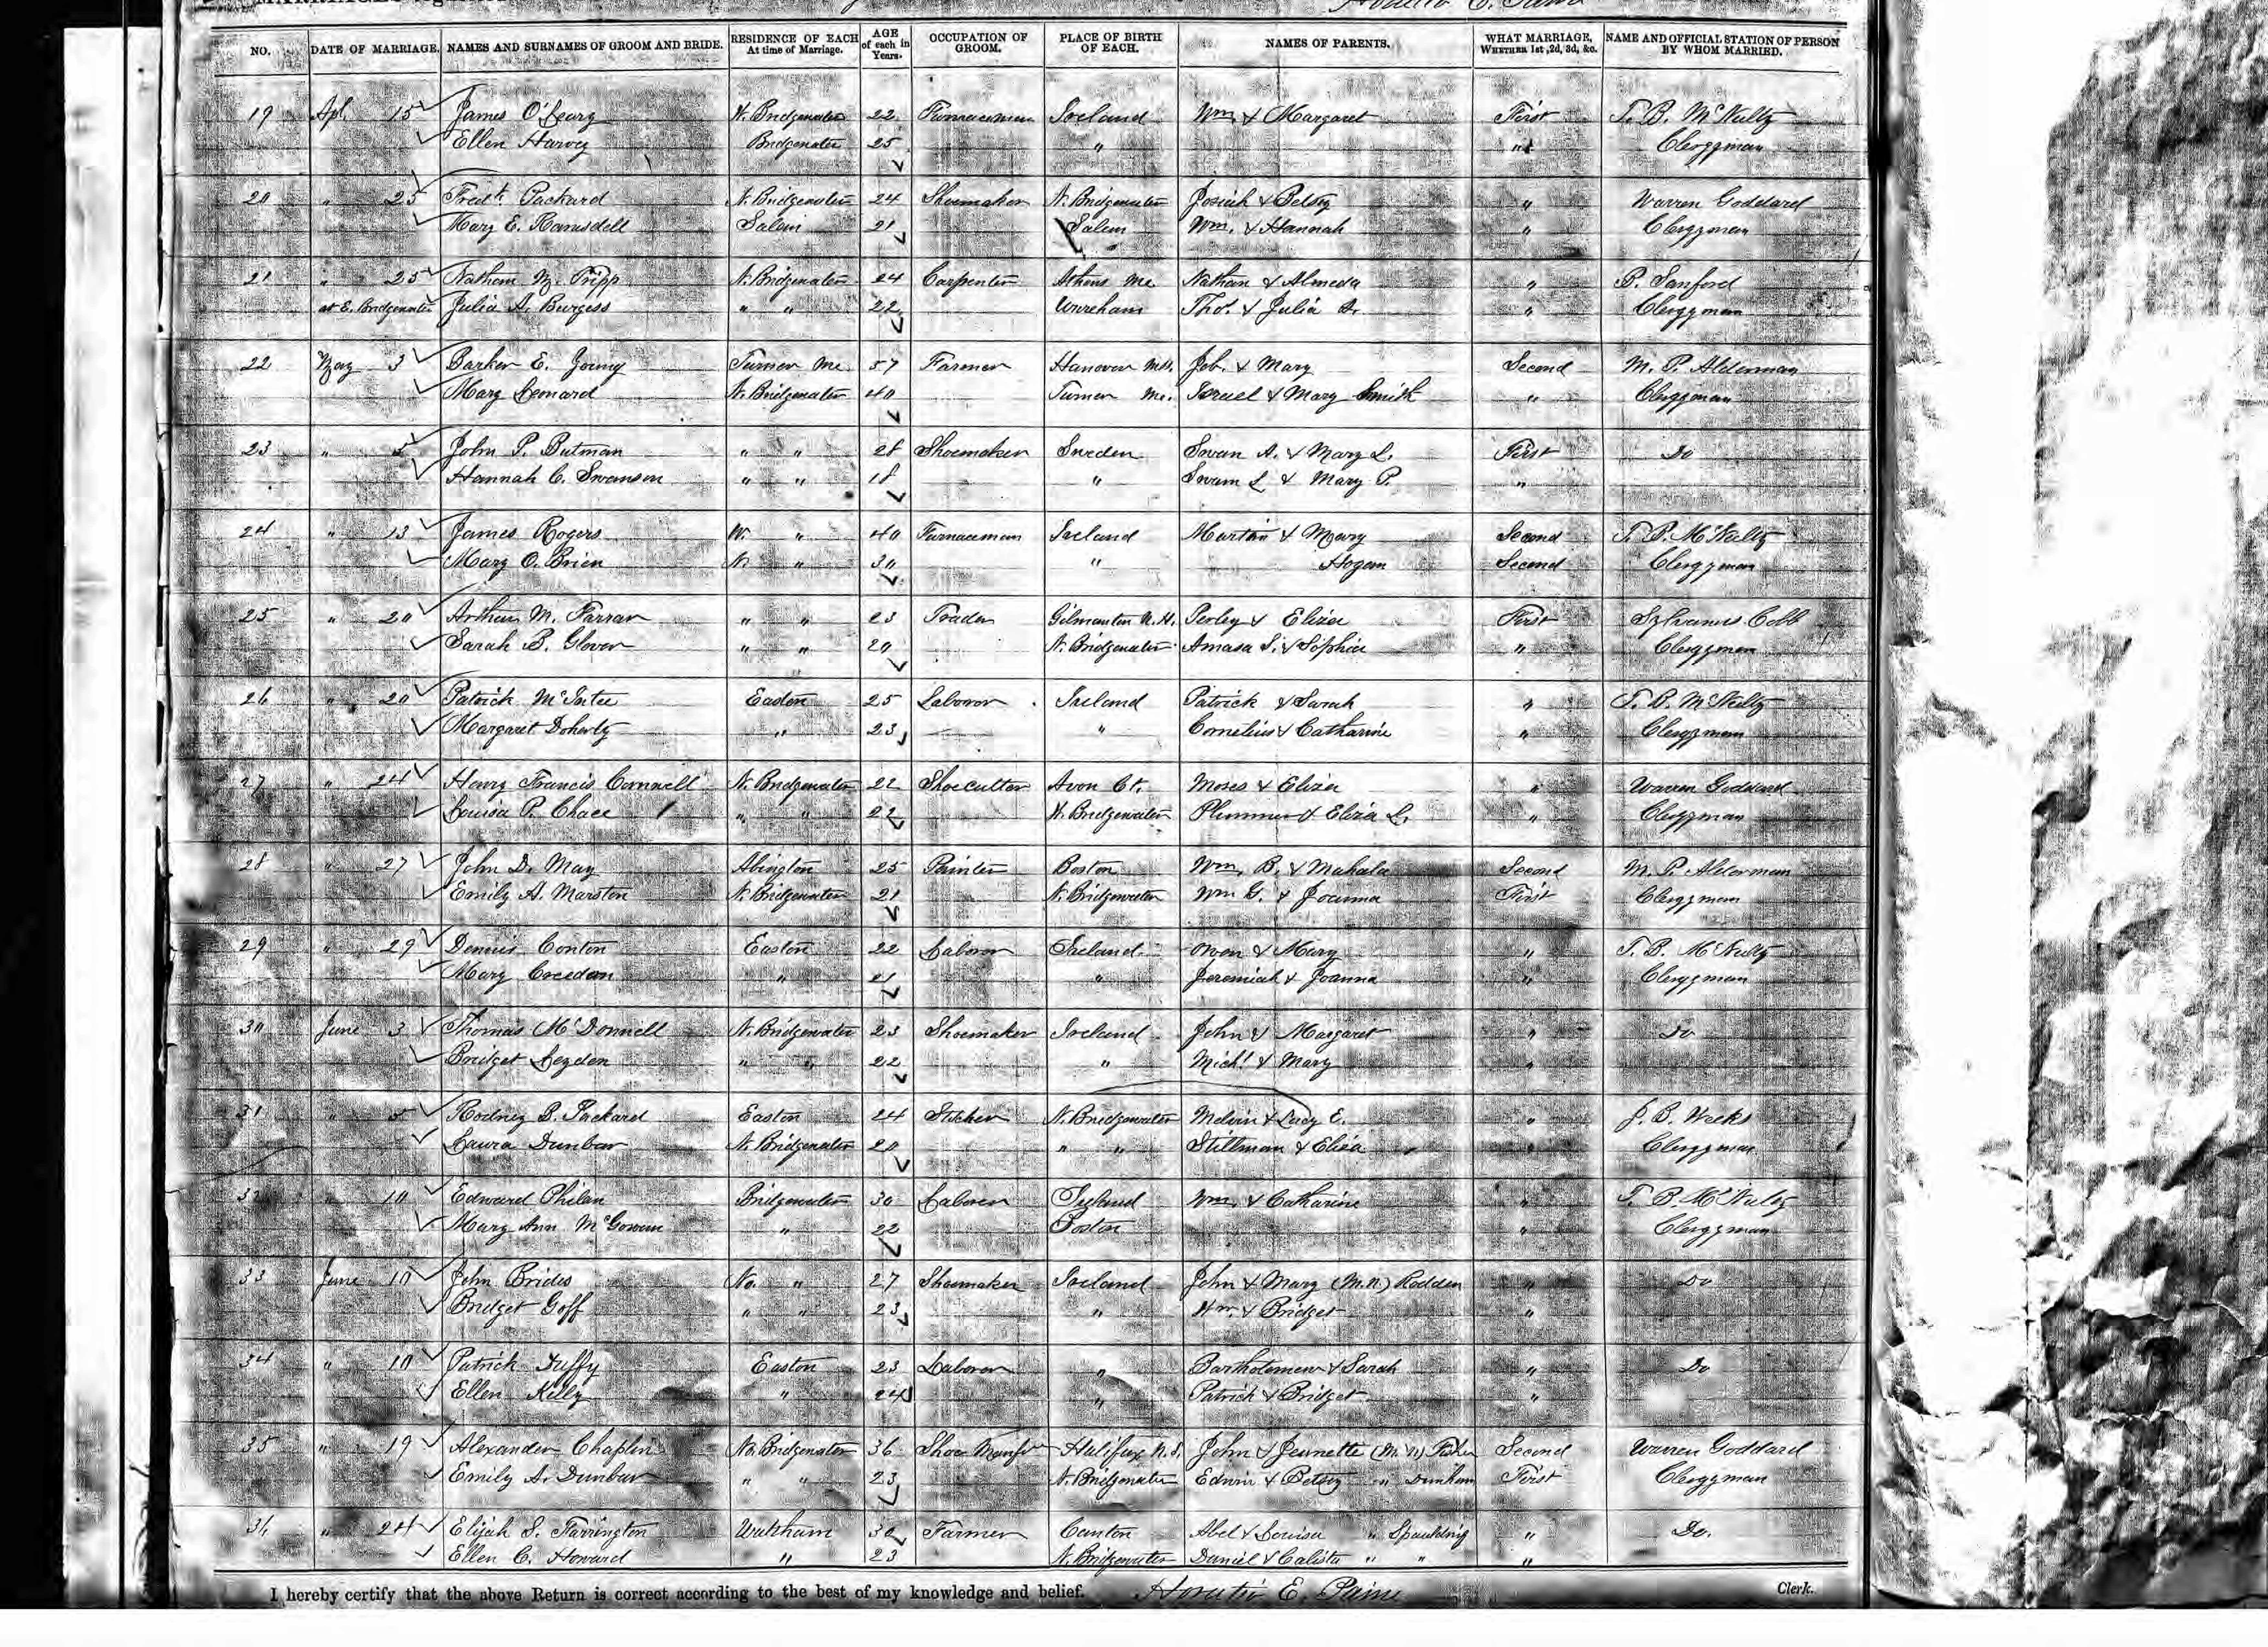 NO. DATE OF MARRIAGE. NAMES AND SURNAMES OF GROOM AND BRIDE. RESIDENCE OF EACH At time of Marriage. AGE of each in Years. OCCUPATION OF GROOM. PLACE OF BIRTH OF EACH. NAMES OF PARENTS. WHAT MARRIAGE, WHETHER 1st, 2d, 3d, &c. NAME AND OFFICIAL STATION OF PERSON BY WHOM MARRIED.
19 Apl. 15 James O'Leary N. Bridgewater 22 Furnaceman Ireland Wm. & Margaret First T. B. McNulty
Ellen Harvey Bridgewater 25 " " Clergyman
20 " 25 Fredk. Packard N. Bridgewater 24 Shoemaker N. Bridgewater Josiah & Betsey " Warren Goddard
Mary E. Ramsdell Salem 21 Salem Wm. & Hannah " Clergyman
21 " 25 Nathan M. Tripp N. Bridgewater 24 Carpenter Athens Me Nathan & Almeda " P. Sanford
at E. Bridgewater Julia A. Burgess " " 22 Wareham Tho's. & Julia A. " Clergyman
22 May 3 Barker E. Young Turner Me 57 Farmer Hanover Ms. Job. & Mary Second M. P. Alderman
Mary Leonard N. Bridgewater 40 Turner Me. Israel & Mary Smith " Clergyman
23 " 5 John P. Butman " " 28 Shoemaker Sweden Swan A. & Mary L. First Do
Hannah C. Swanson " " 18 " Swan L & Mary P. "
24 " 13 James Rogers W. " 40 Furnaceman Ireland Martin & Mary Second T. B. McNulty
Mary O. Brien N. " 30 " Hogan Second Clergyman
25 " 20 Arthur M. Farrar " " 23 Trader Gilmanton N.H. Perley & Eliza First Sylvanus Cobb
Sarah B. Glover " " 20 N. Bridgewater Amasa S. & Sophia " Clergyman
26 " 20 Patrick McIntee Easton 25 Laborer Ireland Patrick & Sarah " T. B. McNulty
Margaret Doherty " 23 " Cornelius & Catharine " Clergyman
27 " 24 Henry Francis N. Bridgewater 22 Shoecutter Avon Ct. Moses & Eliza " Warren Goddard
Louisa P. Chace " " 22 N. Bridgewater Plummer & Eliza L. " Clergyman
28 " 27 John D. May Abington 25 Boston Wm. B. & Mahala Second M. P. Alderman
Emily A. Marston N. Bridgewater 21 N. Bridgewater Wm G. & Joanna First Clergyman
29 " 29 Dennis Conton Easton 22 Laborer Ireland Owen & Mary " T. B. McNulty
Mary Creedan " 21 " Jeremiah & Joanna " Clergyman
30 June 3 Thomas McDonnell N. Bridgewater 23 Shoemaker Ireland John & Margaret " Do
Bridget Leyden " " 22 " Michl. & Mary "
31 " 5 Rodney B. Packard Easton 24 Sticher N. Bridgewater Melvin & Lucy E. " J. B. Weeks
Laura Dunbar N. Bridgewater 20 " " Stillman & Eliza " Clergyman
32 " 10 Edward Philan Bridgewater 30 Laborer Ireland Wm. & Catharine " T. B. McNulty
Mary Ann McGowan " 22 Boston " Clergyman
33 June 10 John Brides No. " 27 Shoemaker Ireland John & Mary (M.N.) Radden " Do
Bridget Goff " " 23 " Wm. & Bridget "
34 " 10 Patrick Duffy Easton 23 Laborer " Bartholomew & Sarah " Do
Ellen Kelly " 24 " Patrick & Bridget "
35 " 19 Alexander Chaplin No. Bridgewater 36 Shoe Manfr Halifax N.S. John & Jeunette (M.N) Fisher Second Warren Goddard
Emily A. Dunbar " " 23 N. Bridgewater Edwin & Betsey " Dunham First Clergyman
36 " 24 Elijah S. Farrington Waltham 30 Farmer Canton Abel & Louisa " Spaulding " Do.
Ellen C. Howard " 23 N. Bridgewater Daniel & Calista " " "
I hereby certify that the above Return is correct according to the best of my knowledge and belief. Horatio E. Paine Clerk.